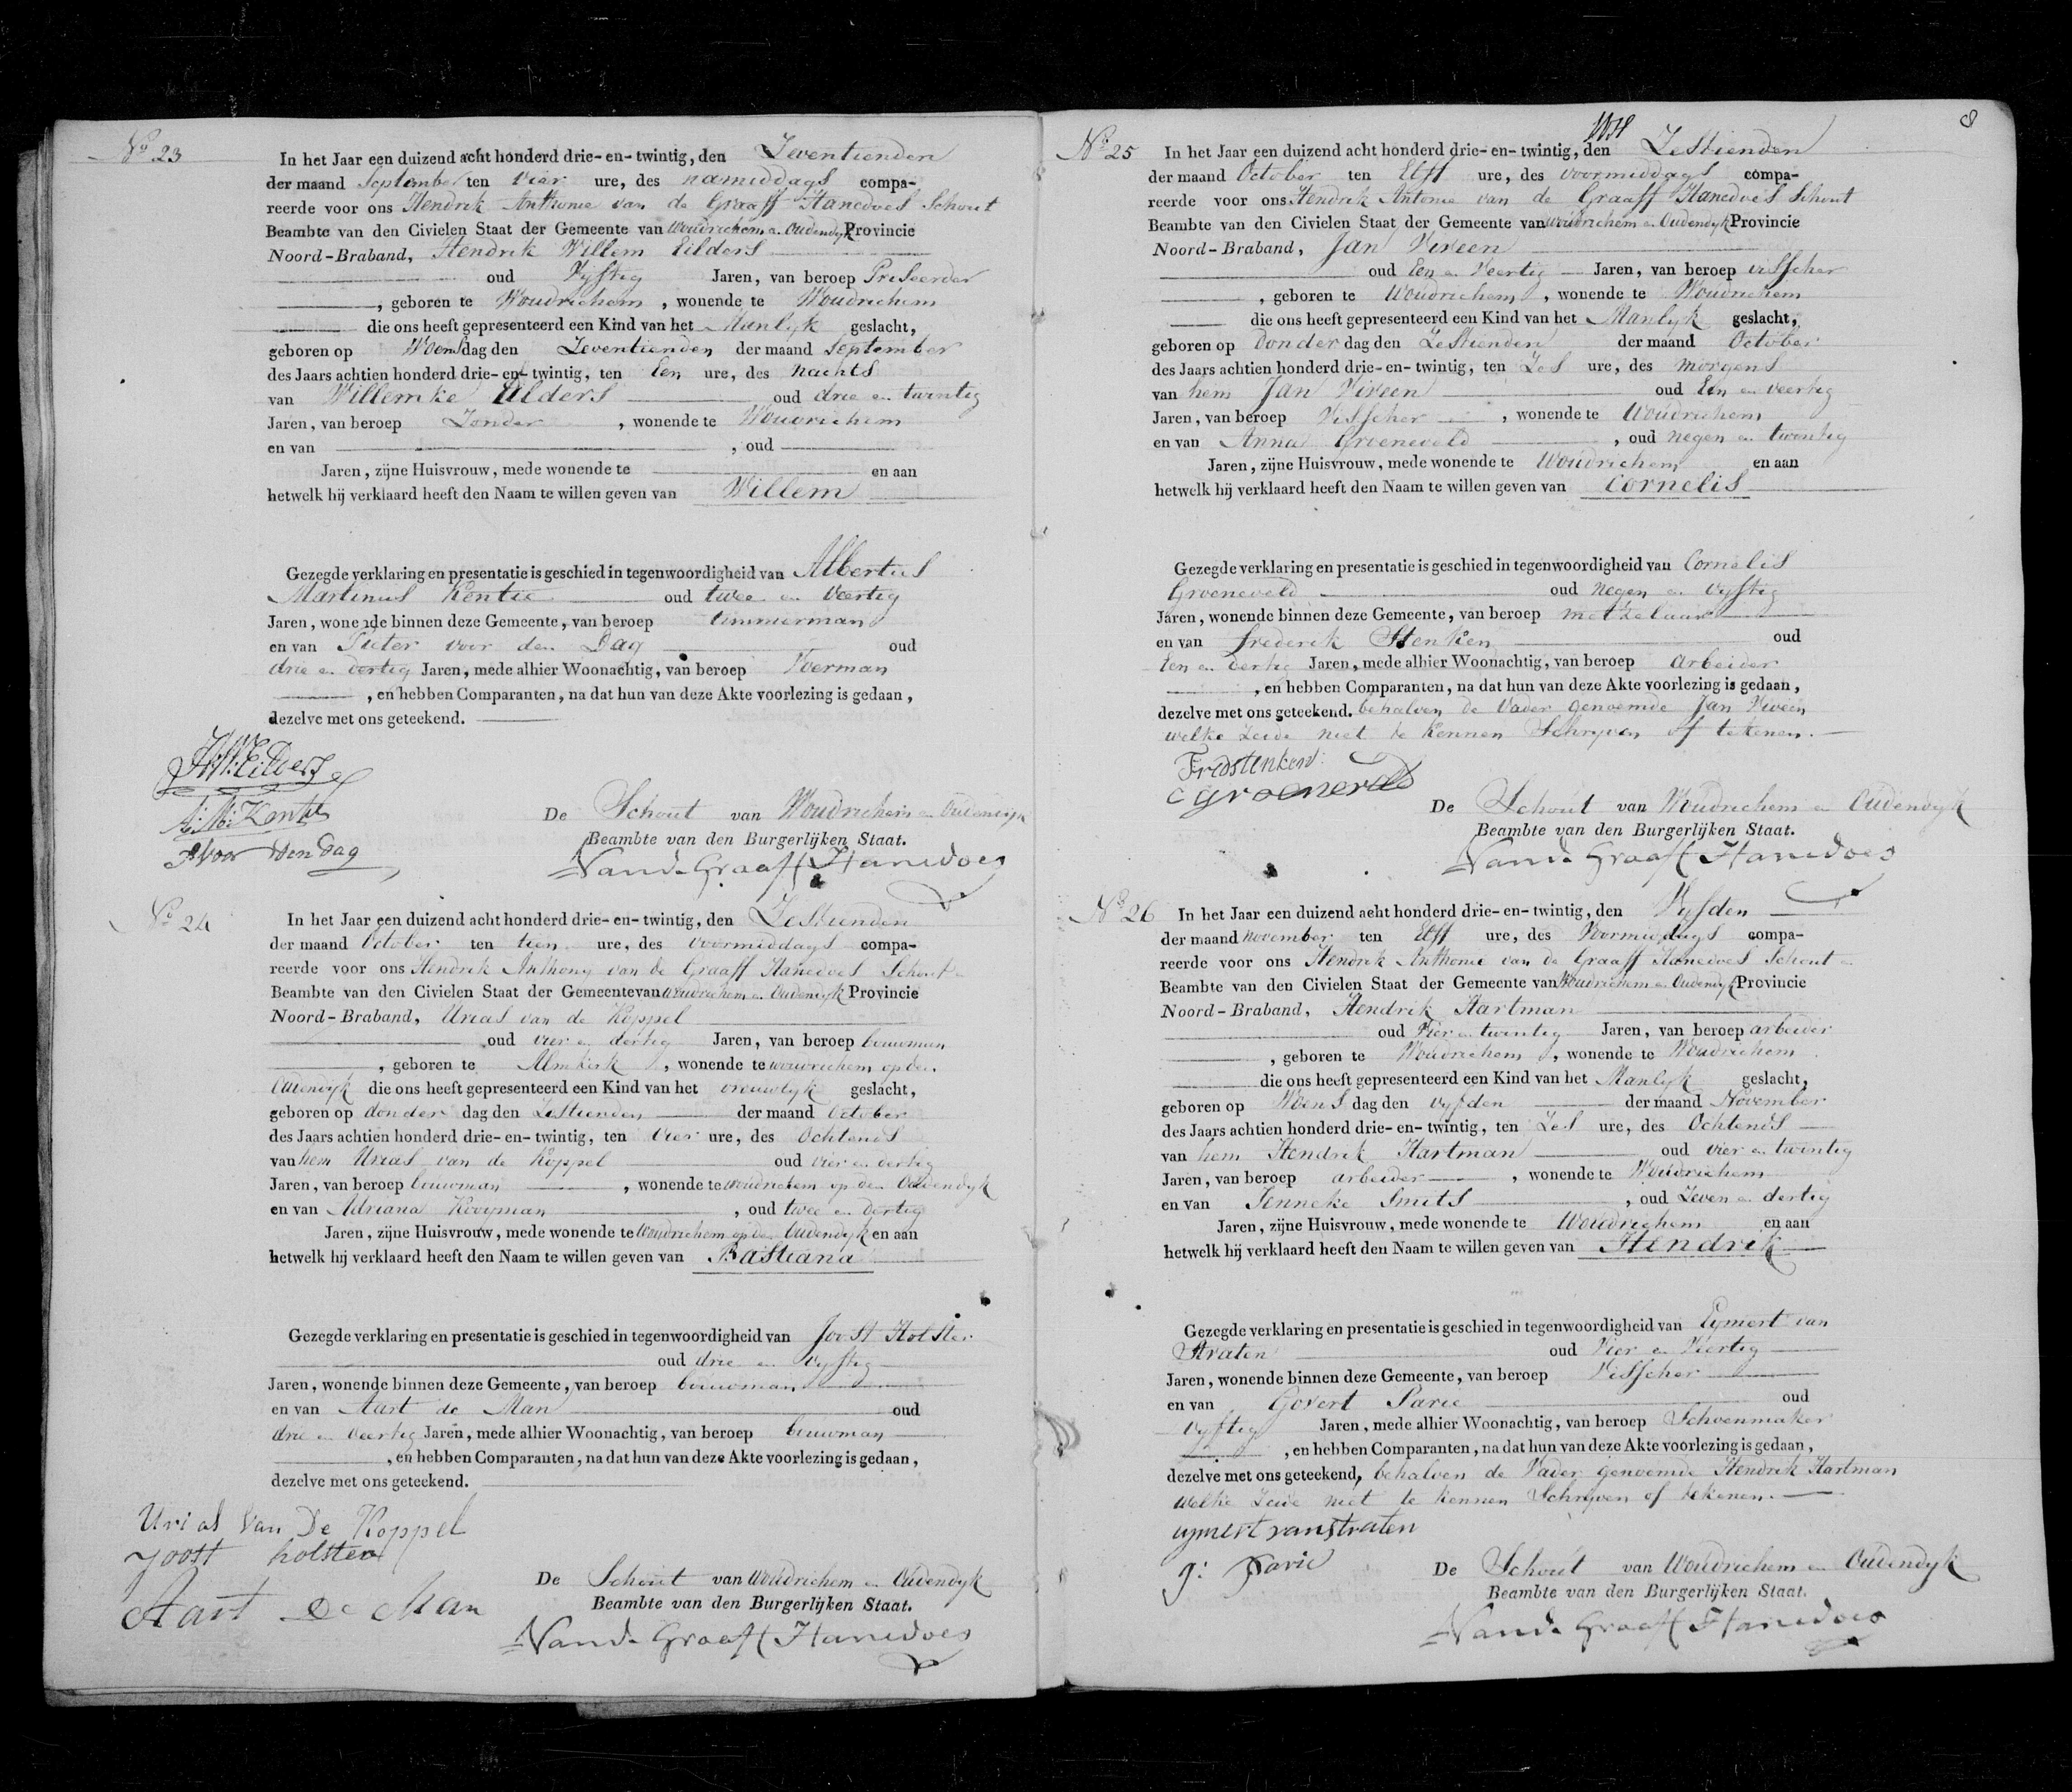 No 23
In het Jaar een duizend acht honderd drie-en-twintig, den Zeventienden
der maand September ten Vier ure, des namiddags compa-
reerde voor ons Hendrik Anthonie van de Graaff Hanedoes Schout
Beambte van den Civielen Staat der Gemeente van Woudrichem en Oudendyk Provincie
Noord-Braband, Hendrik Willem Eilders
oud Vyftig Jaren, van beroep
, geboren te Woudrichem, wonende te Woudrichem
die ons heeft gepresenteerd een Kind van het Manlyk geslacht,
geboren op Woensdag den Zeventienden der maand September
des Jaars achtien honderd drie-en-twintig, ten Een ure, des nachts
van Willemke Eilders oud drie en twintig
Jaren, van beroep Zonder, wonende te Woudrichem
en van , oud
Jaren, zijne Huisvrouw, mede wonende te en aan
hetwelk hij verklaard heeft den Naam te willen geven van Willem
Gezegde verklaring en presentatie is geschied in tegenwoordigheid van Albertus
Martinus Kentie oud twee en Veertig
Jaren, wonende binnen deze Gemeente, van beroep timmerman
en van Pieter voor den Dag oud
drie en dertig Jaren, mede alhier Woonachtig, van beroep Voerman
, en hebben Comparanten, na dat hun van deze Akte voorlezing is gedaan,
dezelve met ons geteekend.
H:W:Eilders
A:M:Kentie
P Voor den dag
De Schout van Woudrichem en Oudendyk
Beambte van den Burgerlijken Staat.
Van de Graaff Hanedoes
No 24
In het Jaar een duizend acht honderd drie-en-twintig, den Zestienden
der maand October ten tien ure, des voormiddags compa-
reerde voor ons Hendrik Anthony van de Graaff Hanedoes Schout en
Beambte van den Civielen Staat der Gemeente van Woudrichem en Oudendyk Provincie
Noord-Braband, Urias van de Koppel
oud vier en dertig Jaren, van beroep bouwman
, geboren te Almkerk, wonende te woudrichem op den
Oudendyk die ons heeft gepresenteerd een Kind van het vrouwlyk geslacht,
geboren op donder dag den Zestienden der maand October
des Jaars achtien honderd drie-en-twintig, ten Vier ure, des Ochtends
van hem Urias van de Koppel oud vier en dertig
Jaren, van beroep bouwman, wonende te woudrichem op den Oudendyk
en van Adriana Kooyman, oud twee en dertig
Jaren, zijne Huisvrouw, mede wonende te Woudrichem op den Oudendyk en aan
hetwelk hij verklaard heeft den Naam te willen geven van Bastiana
Gezegde verklaring en presentatie is geschied in tegenwoordigheid van Joost Holster
oud drie en Vyftig
Jaren, wonende binnen deze Gemeente, van beroep bouwman
en van Aart de Man oud
drie en Veertig Jaren, mede alhier Woonachtig, van beroep bouwman
, en hebben Comparanten, na dat hun van deze Akte voorlezing is gedaan,
dezelve met ons geteekend.
Urias Van De Koppel
Joost holster
Aart De Man
De Schout van Woudrichem en Oudendyk
Beambte van den Burgerlijken Staat.
Van de Graaff Hanedoes
8
No 25
In het Jaar een duizend acht honderd drie-en-twintig, den Zestienden
der maand October ten Elff ure, des voormiddags compa-
reerde voor ons Hendrik Antonie van de Graaff Hanedoes Schout
Beambte van den Civielen Staat der Gemeente van Woudrichem en Oudendyk Provincie
Noord-Braband, Jan Viveen
oud Een en Veertig Jaren, van beroep visscher
, geboren te Woudrichem, wonende te Woudrichem
die ons heeft gepresenteerd een Kind van het Manlyk geslacht,
geboren op Donder dag den Zestienden der maand October
des Jaars achtien honderd drie-en-twintig, ten Zes ure, des morgens
van hem Jan Viveen oud Een en veertig
Jaren, van beroep Visscher, wonende te Woudrichem
en van Anna Groeneveld, oud negen en twintig
Jaren, zijne Huisvrouw, mede wonende te Woudrichem en aan
hetwelk hij verklaard heeft den Naam te willen geven van Cornelis
Gezegde verklaring en presentatie is geschied in tegenwoordigheid van Cornelis
Groeneveld oud negen en vyftig
Jaren, wonende binnen deze Gemeente, van beroep metzelaar
en van Frederik Stenken oud
Een en dertig Jaren, mede alhier Woonachtig, van beroep arbeider
, en hebben Comparanten, na dat hun van deze Akte voorlezing is gedaan,
dezelve met ons geteekend. behalven de Vader genoemde Jan Viveen
welke Zeide niet te kennen Schryven of tekenen.
Fredstenken
C groeneveld
De Schout van Woudrichem en Oudendyk
Beambte van den Burgerlijken Staat.
Van de Graaff Hanedoes
No 26
In het Jaar een duizend acht honderd drie-en-twintig, den Vyfden
der maand november ten Elff ure, des Voormiddags compa-
reerde voor ons Hendrik Anthonie van de Graaff Hanedoes Schout en
Beambte van den Civielen Staat der Gemeente van Woudrichem en Oudendyk Provincie
Noord-Braband, Hendrik Hartman
oud Vier en twintig Jaren, van beroep arbeider
, geboren te Woudrichem, wonende te Woudrichem
die ons heeft gepresenteerd een Kind van het Manlyk geslacht,
geboren op Woens dag den vyfden der maand November
des Jaars achtien honderd drie-en-twintig, ten Zes ure, des Ochtends
van hem Hendrik Hartman oud vier en twintig
Jaren, van beroep arbeider, wonende te Woudrichem
en van Jenneke Smits, oud Zeven en dertig
Jaren, zijne Huisvrouw, mede wonende te Woudrichem en aan
hetwelk hij verklaard heeft den Naam te willen geven van Hendrik
Gezegde verklaring en presentatie is geschied in tegenwoordigheid van Eymert van
Straten oud Vier en Veertig
Jaren, wonende binnen deze Gemeente, van beroep Visscher
en van Govert Parie oud
vyftig Jaren, mede alhier Woonachtig, van beroep Schoenmaker
, en hebben Comparanten, na dat hun van deze Akte voorlezing is gedaan,
dezelve met ons geteekend, behalven de Vader genoemde Hendrik Hartman
welke Zeide niet te kennen Schryven of tekenen.
eymert vanstraten
g: parie
De Schout van Woudrichem en Oudendyk
Beambte van den Burgerlijken Staat.
Van de Graaff Hanedoes